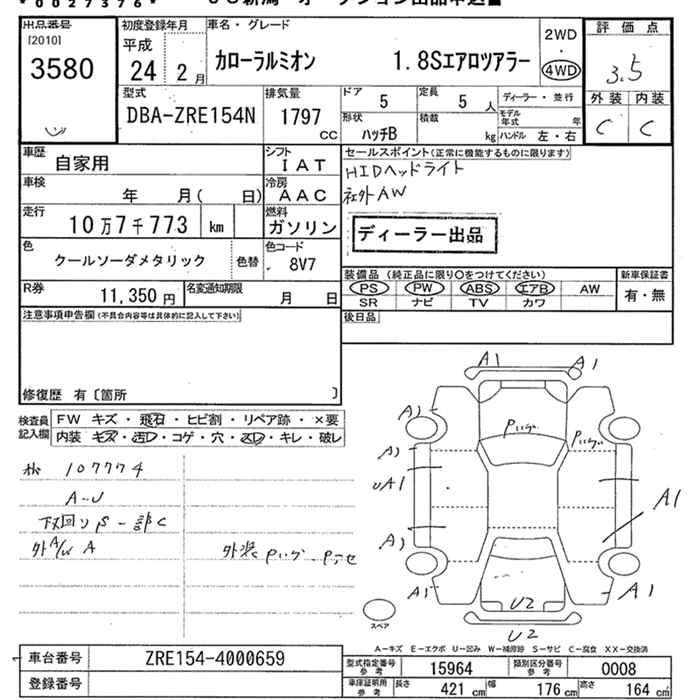 *0027376*
出品番号 初度登録年月 車名・グレード 2WD 評価点
[2010] 平成 ・
3580 24 2月 カローラルミオン 1.8Sエアロツアラー 4WD 3.5
型式 排気量 ドア 5 定員 5人 ディーラー・並行 外装 内装
DBA-ZRE154N 1797 CC 形状 ハッチB 積載 kg モデル年式 年 C C
ハンドル 左・右
車歴 自家用 シフト IAT セールスポイント(正常に機能するものに限ります)
車検 年 月( 日) 冷房 AAC HIDヘッドライト
社外AW
走行 10万7千773 km 燃料 ガソリン ディーラー出品
色 クールソーダメタリック 色替 色コード 8V7
装備品(純正品に限り○をつけてください) 新車保証書
R券 11,350円 名変通知期限 月 日 PS PW ABS エアB AW 有・無
SR ナビ TV カワ
注意事項申告欄(不具合内容等は具体的に記入して下さい) 後日品
修復歴 有〔箇所 〕
検査員 FW キズ・飛石・ヒビ割・リペア跡・×要
記入欄 内装 キズ・汚レ・コゲ・穴・スレ・キレ・破レ
A1 A1
A1
A1
UA1
A1
A1
A1
A1
U2
U2
107774
A-U
下回りS一部C
外A/W A
スペア
A-キズ E-エクボ U-凹み W-補修跡 S-サビ C-腐食 XX-交換済
車台番号 ZRE154-4000659 型式指定番号 参考 15964 類別区分番号 参考 0008
登録番号 車庫証明用 参考 長さ 421 cm 幅 176 cm 高さ 164 cm